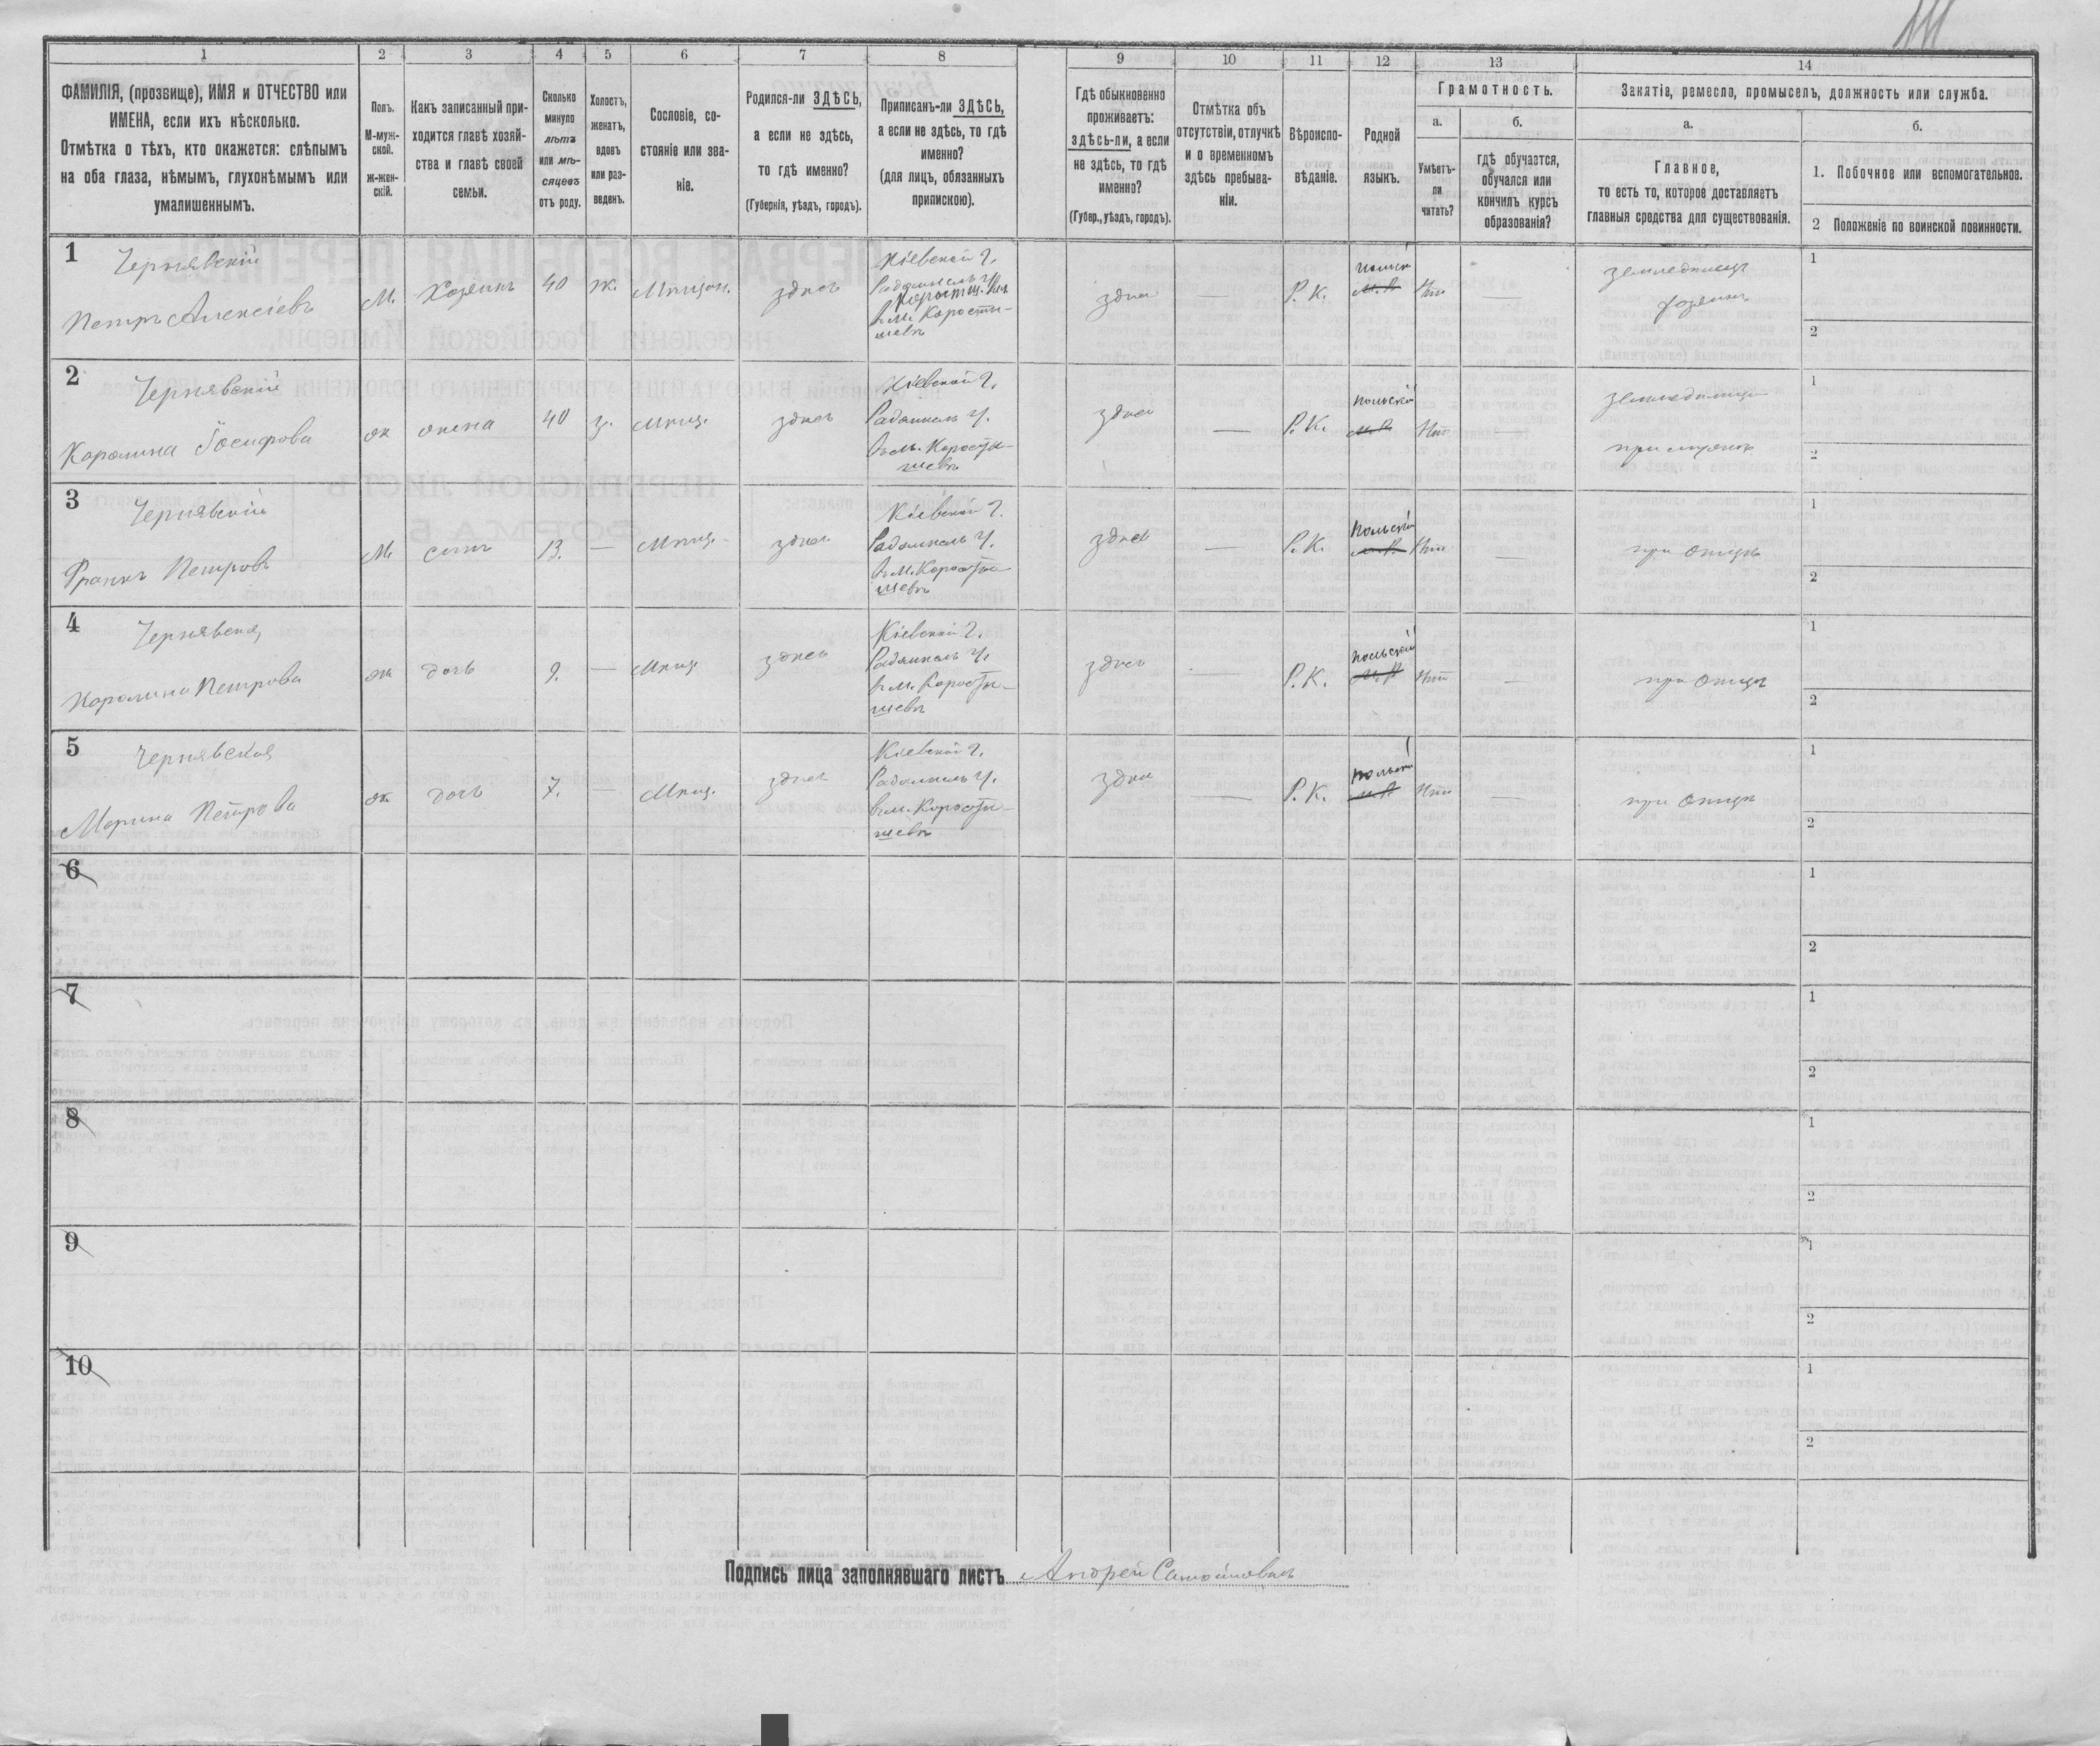 1 2 3 4 5 6 7 8 9 10 11 12 13 14
ФАМИЛІЯ, (прозвище), ИМЯ и ОТЧЕСТВО или
ИМЕНА, если ихъ нѣсколько.
Отмѣтка о тѣхъ, кто окажется: слѣпымъ
на оба глаза, нѣмымъ, глухонѣмымъ или
умалишеннымъ.
Полъ.
М-муж-
ской.
ж-жен-
скій.
Какъ записанный при-
ходится главѣ хозяй-
ства и главѣ своей
семьи.
Сколько
минуло
лѣтъ
или мѣ-
сяцевъ
отъ роду.
Холостъ,
женатъ,
вдовъ
или раз-
веденъ.
Сословіе, со-
стояніе или зва-
ніе.
Родился-ли ЗДѢСЬ,
а если не здѣсь,
то гдѣ именно?
(Губернія, уѣздъ, городъ).
Приписанъ-ли ЗДѢСЬ,
а если не здѣсь, то гдѣ
именно?
(для лицъ, обязанныхъ
припискою).
Гдѣ обыкновенно
проживаетъ:
здѣсь-ли, а если
не здѣсь, то гдѣ
именно?
(Губер., уѣздъ, городъ).
Отмѣтка объ
отсутствіи, отлучкѣ
и о временномъ
здѣсь пребыва-
ніи.
Вѣроиспо-
вѣданіе.
Родной
языкъ.
Грамотность.
а.
Умѣетъ-
ли
читать?
б.
гдѣ обучается,
обучался или
кончилъ курсъ
образованія?
Занятіе, ремесло, промыселъ, должность или служба.
а.
Главное,
то есть то, которое доставляетъ
главныя средства для существованія.
б.
1. Побочное или вспомогательное.
2 Положеніе по воинской повинности.
1
Чернявскій
Петръ Алексѣевъ
М. Хозяинъ 40 ж. Мѣщан. здѣсь
Кіевской г.
Радомысль у.
въ м. Коросты-
шевѣ
здѣсь — Р. К. Нѣт —
земледѣлецъ
хозяинъ
1
2
2
Чернявскій
Каролина Іосифова
ж жена 40 з. мѣщ. здѣсь
Кіевской г.
Радомысль у.
въ м. Коросты-
шевѣ
здѣсь — Р. К. польскій Нѣт —
земледѣлица
при мужѣ
1
2
3
Чернявскій
Франкъ Петровъ
М. сынъ 13. — Мѣщ. здѣсь
Кіевской г.
Радомысль у.
въ м. Коросты-
шевѣ
здѣсь — Р. К. польскій Нѣт —
при отцѣ
1
2
4
Чернявская
Каролина Петрова
ж дочь 9. — Мѣщ здѣсь
Кіевской г.
Радомысль у.
въ м. Коросты-
шевѣ
здѣсь — Р. К. польскій Нѣт —
при отцѣ
1
2
5
Чернявская
Марина Петрова
ж. дочь 7. — Мѣщ. здѣсь
Кіевской г.
Радомысль у.
въ м. Коросты-
шевѣ
здѣсь — Р. К. Нѣт —
при отцѣ
1
2
6
1
2
7
1
2
8
1
2
9
1
2
10
1
2
Подпись лица заполнявшаго листъ Андрей